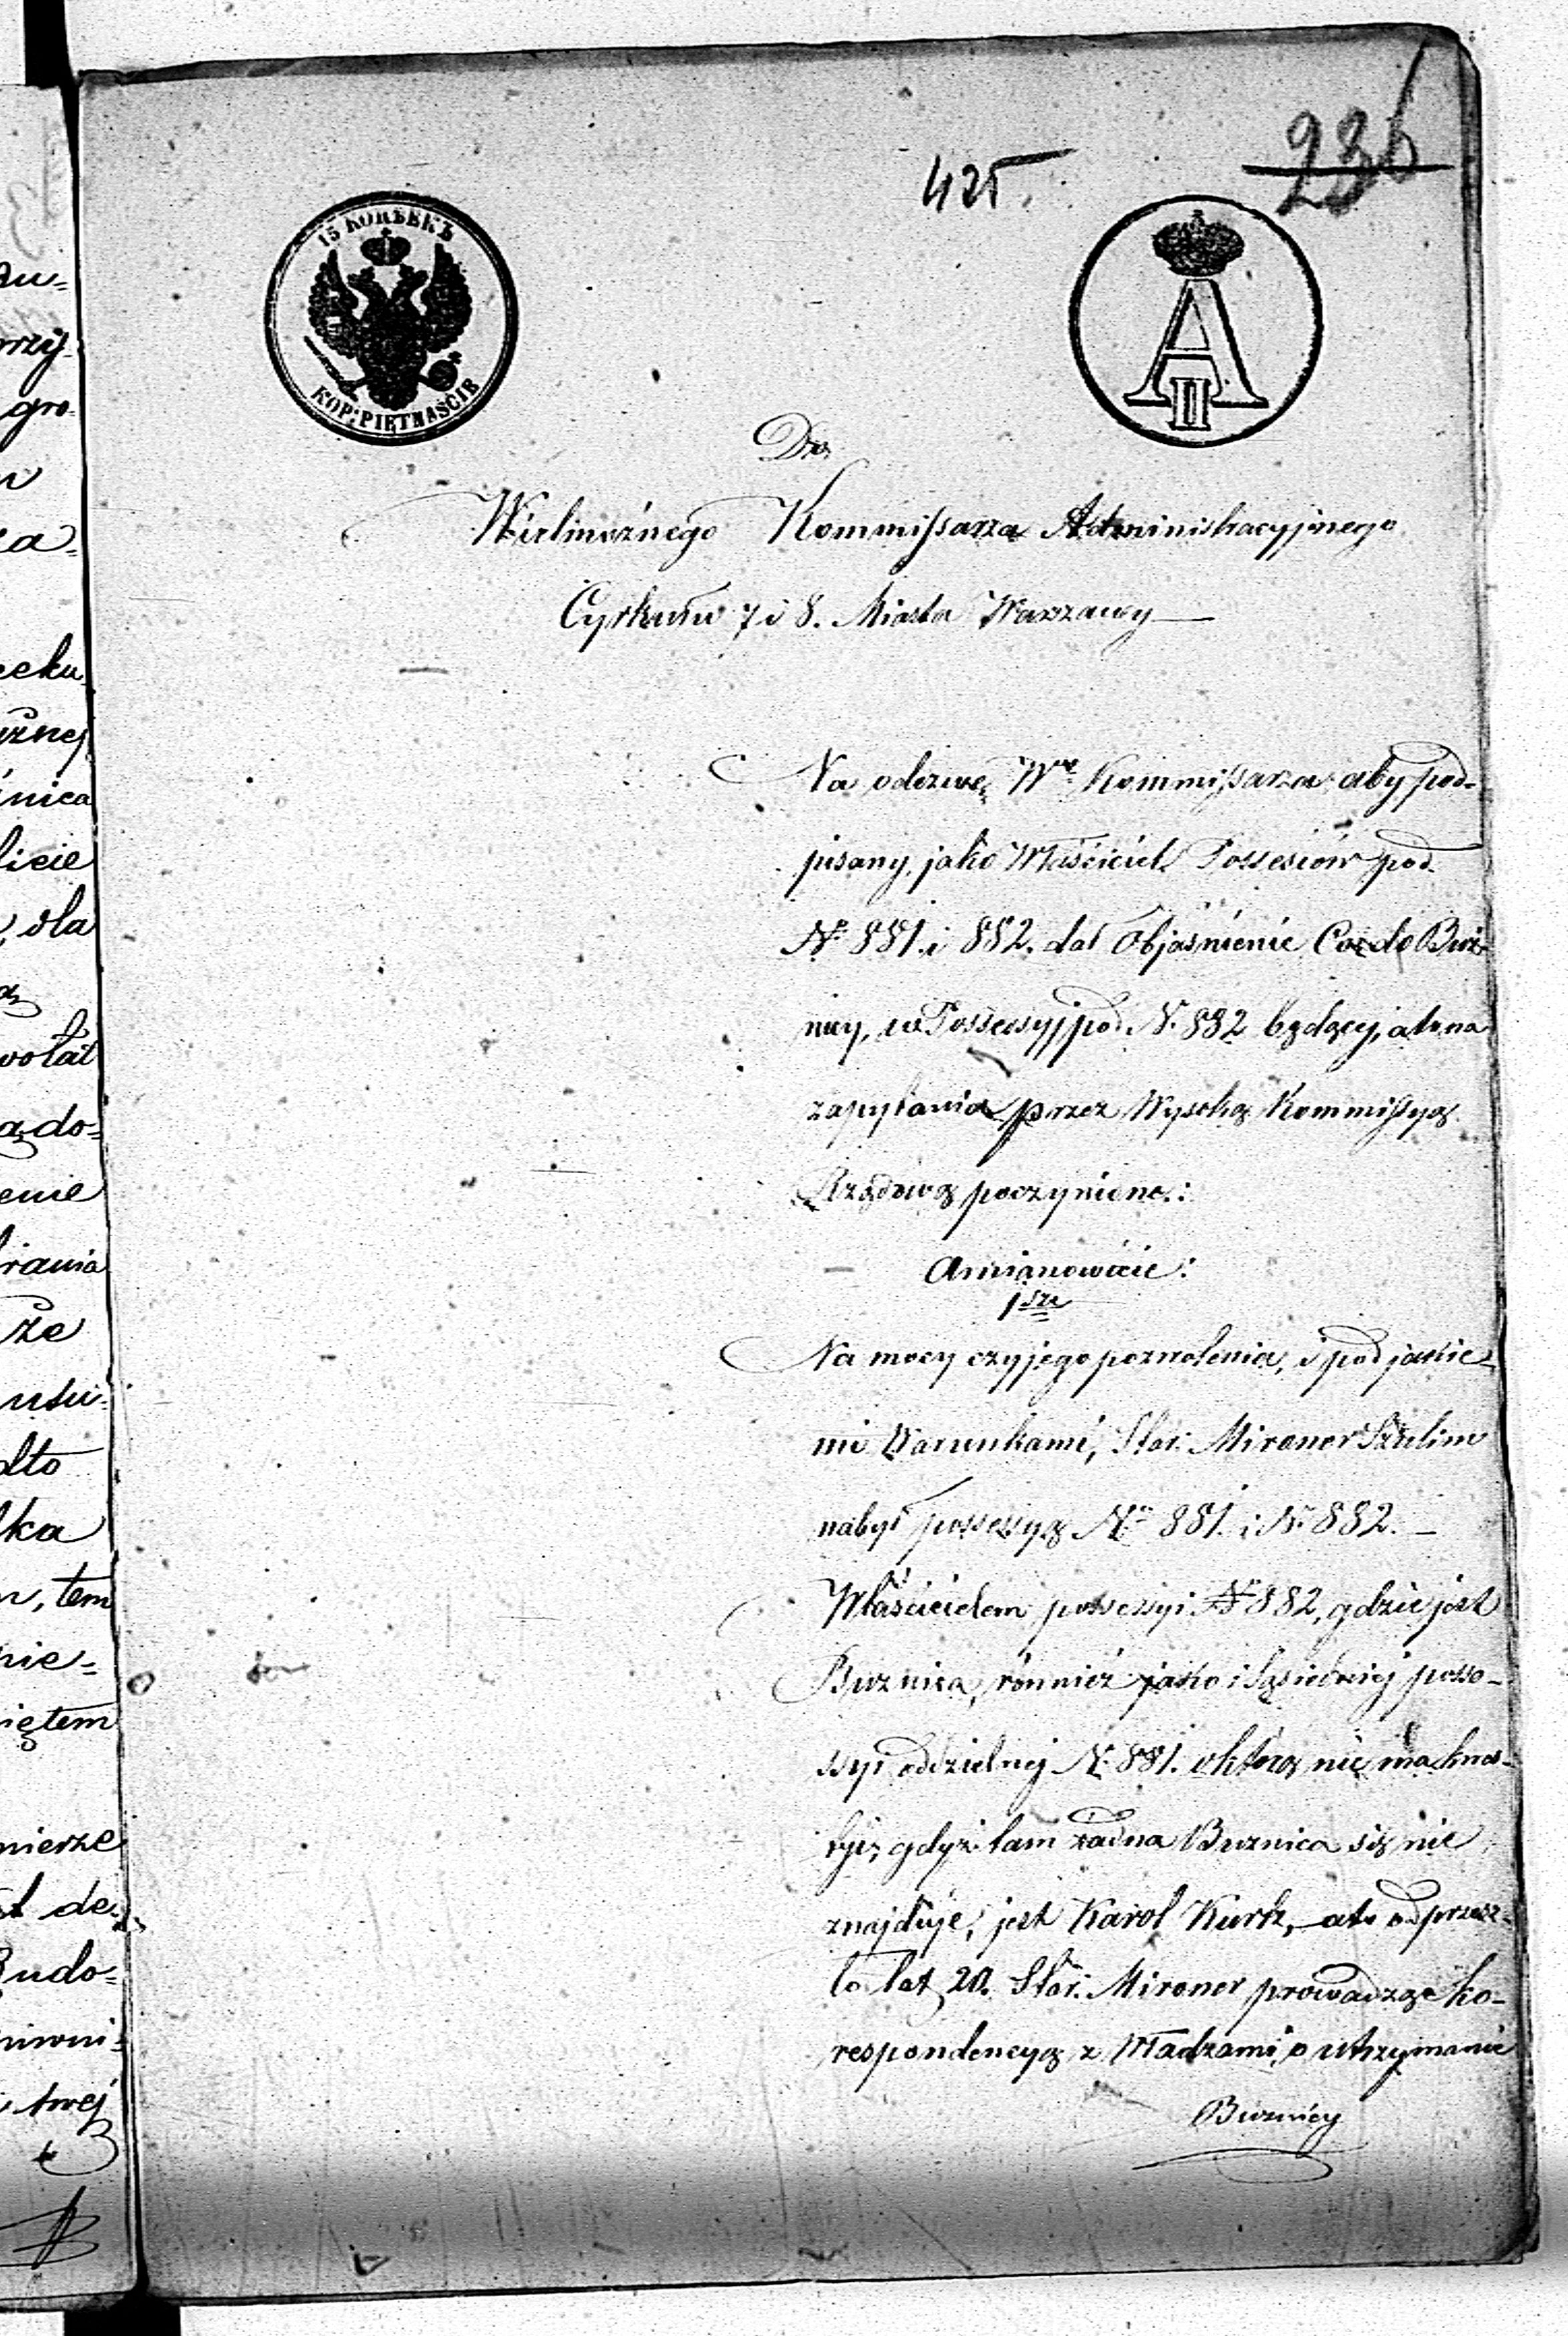 236
425.
15 КОПѢЕКЪ
КОП: PIĘTNAŚCIE
A II
Do
Wielmożnego Kommissarza Administracyjnego
Cyrkułu 7 i 8. Miasta Warszawy —
Na odezwę Wgo Kommissarza aby pod-
pisany, jako Właściciel Possesiów pod
No 881. i 882. dał Objaśnienie Co do Buż-
nicy, w Possessyj pod N. 882 będącej, a to na
zapytania przez Wysoką Kommissyą
Rządową poczynione.:
Amianowicie:
1sze
Na mocy czyjego pozwolenia, i pod jakie-
mi Warunkami, Star: Mironer Szulim
nabył possessyą No 881. i N. 882. —
Właścicielem possessyi No 882, gdzie jest
Buznica, również jako i Sąsiedniej posse-
ssyi oddzielnej N. 881. o którą nie ma kwes-
tyi, gdyż tam żadna Buznica się nie
znajduje, jest Karol Kurtz, — a to od przesz-
ło lat 20. Star: Mironer prowadząc ko-
respondencyą z Władzami, o utrzymanie
Buznicy
zu=
gro-
eku-
znej
nica
licie
dla
wołał
ądo=
enie
brania
że
usu-
dto
lka
, tem
nie=
iętem
mierze
de-
Budo=
twej